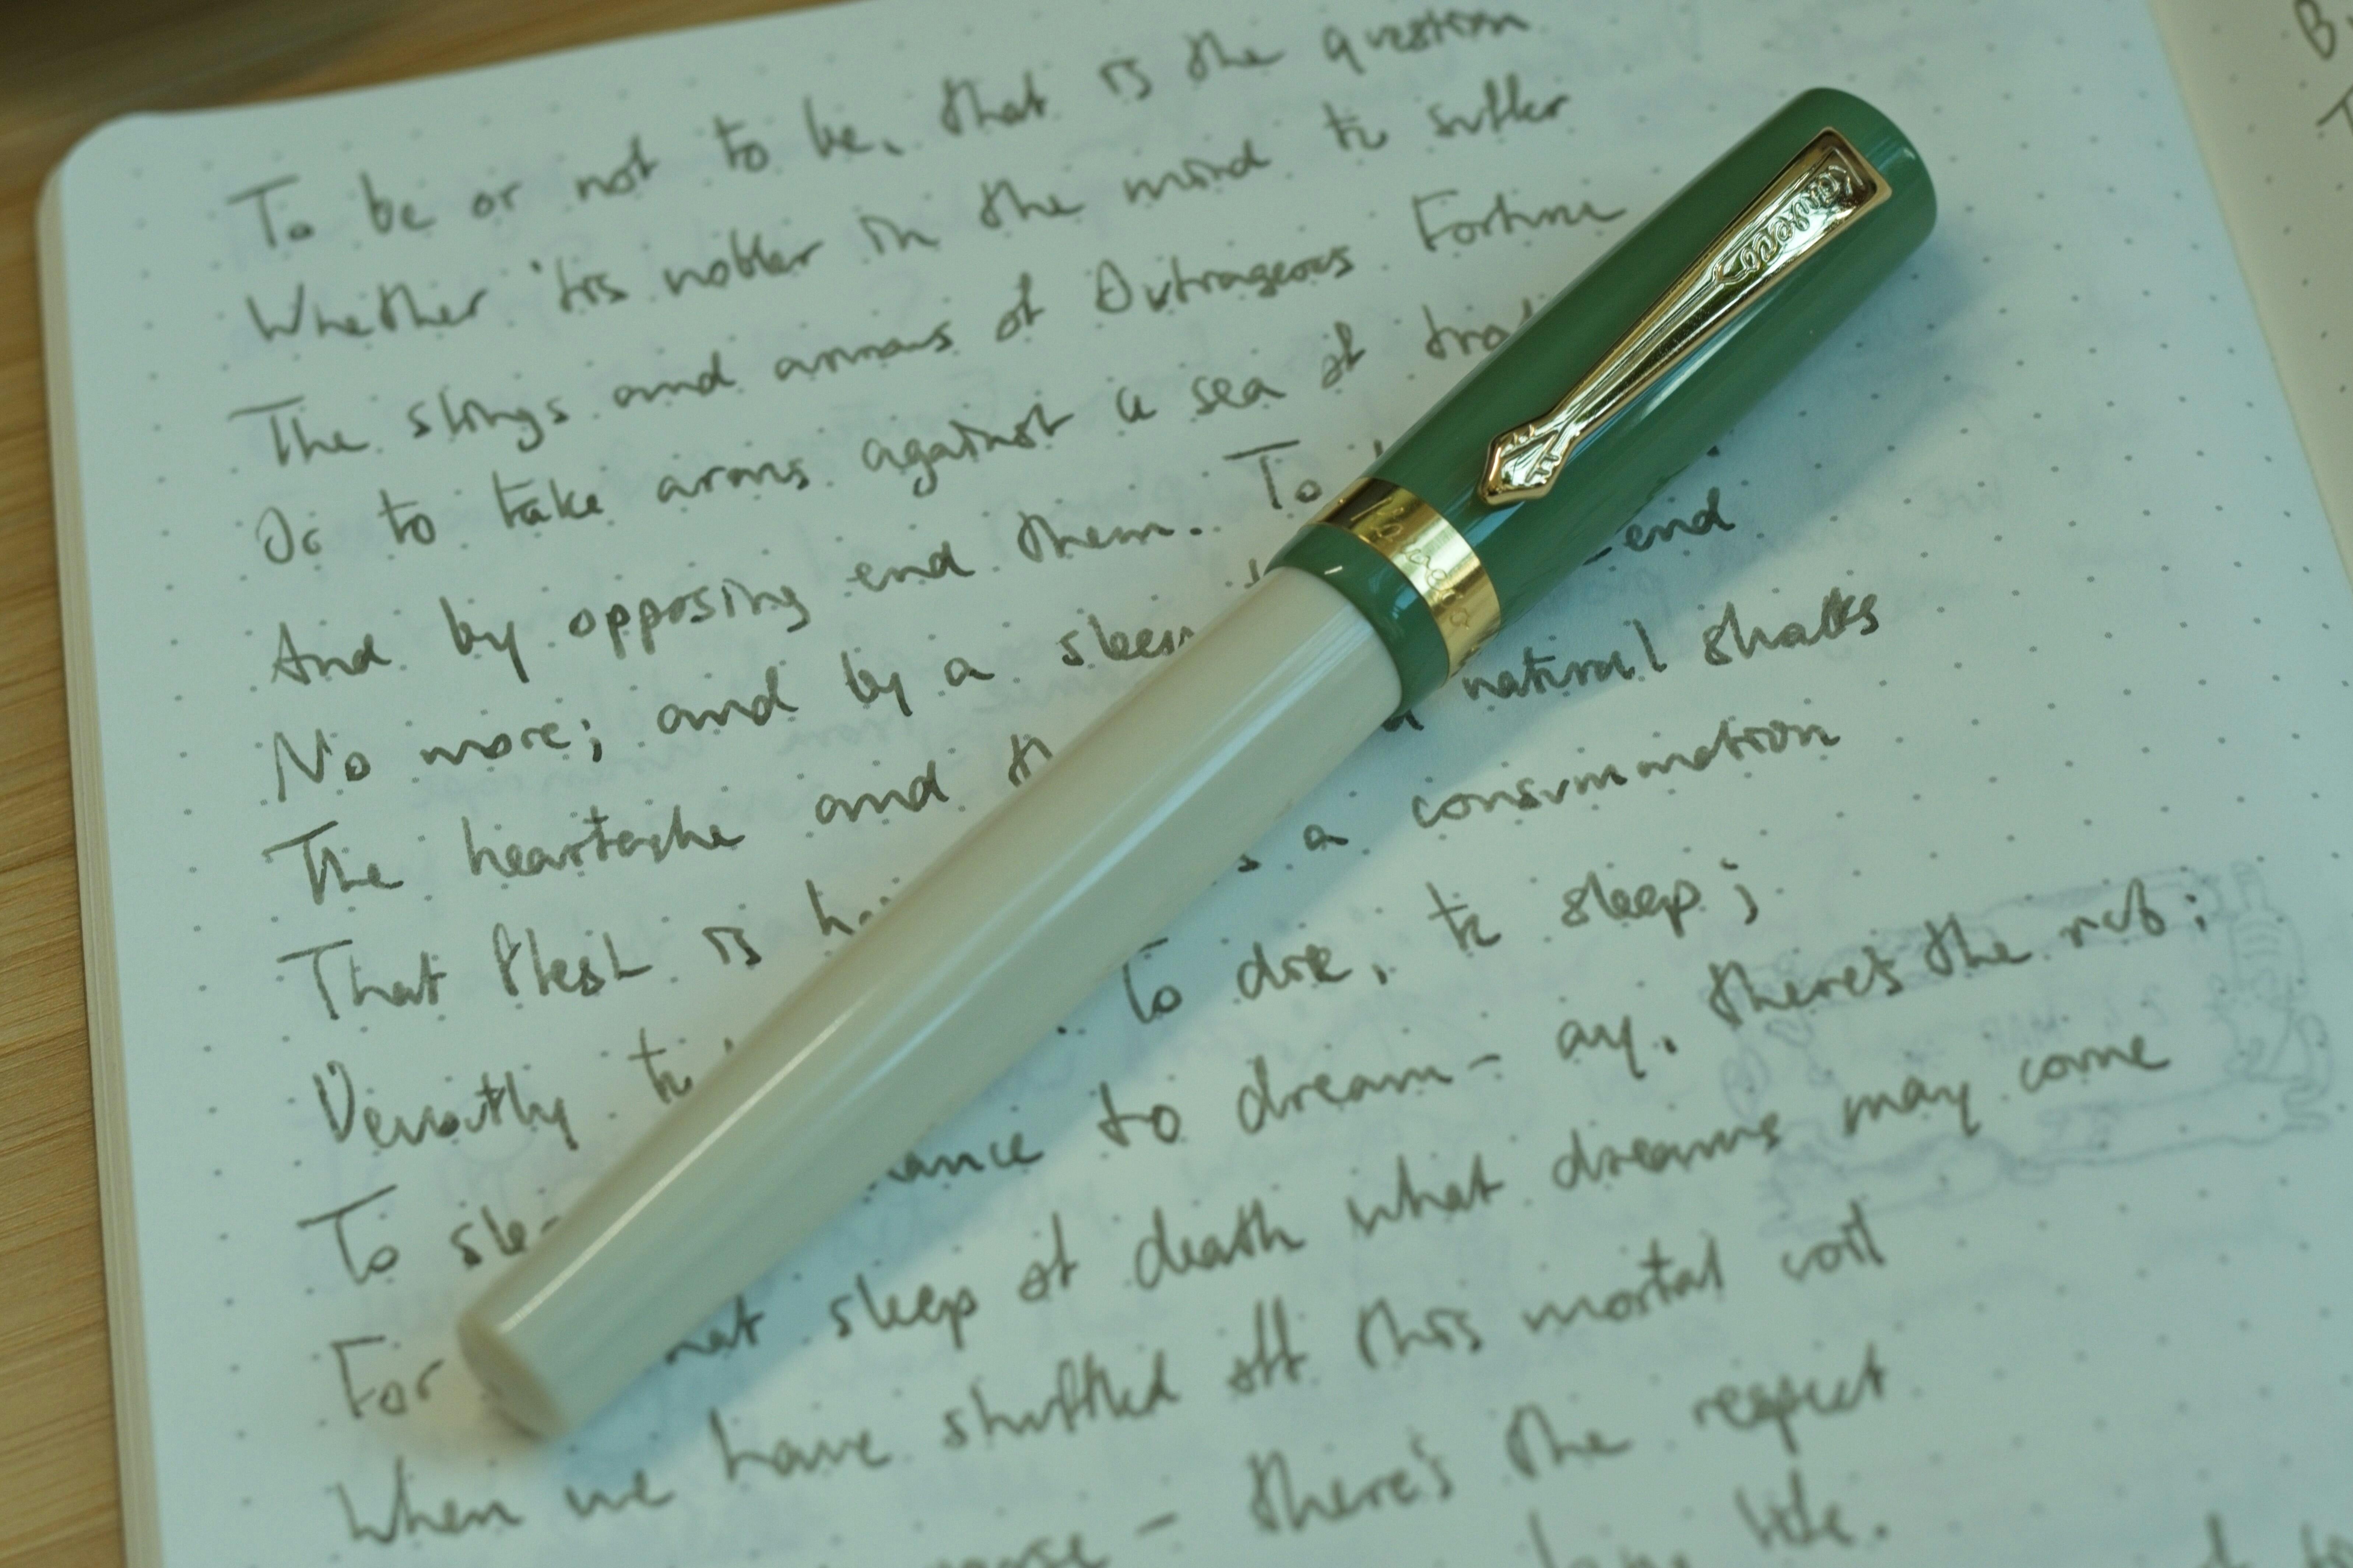 To be or not to be, that is the question
Whether 'tis nobler in the mind to suffer
The slings and arrows of Outrageous Fortune
Or to take arms against a sea of
And by opposing end them. To
No more; and by a end
The heartache and natural shocks
That flesh is a consummation
Devoutly to To die, to sleep;
To to dream- ay, there's the rub:
For sleep of death what dreams may come
When we have shuffled off this mortal coil
there's the respect
life.
Kaweco
Kaweco